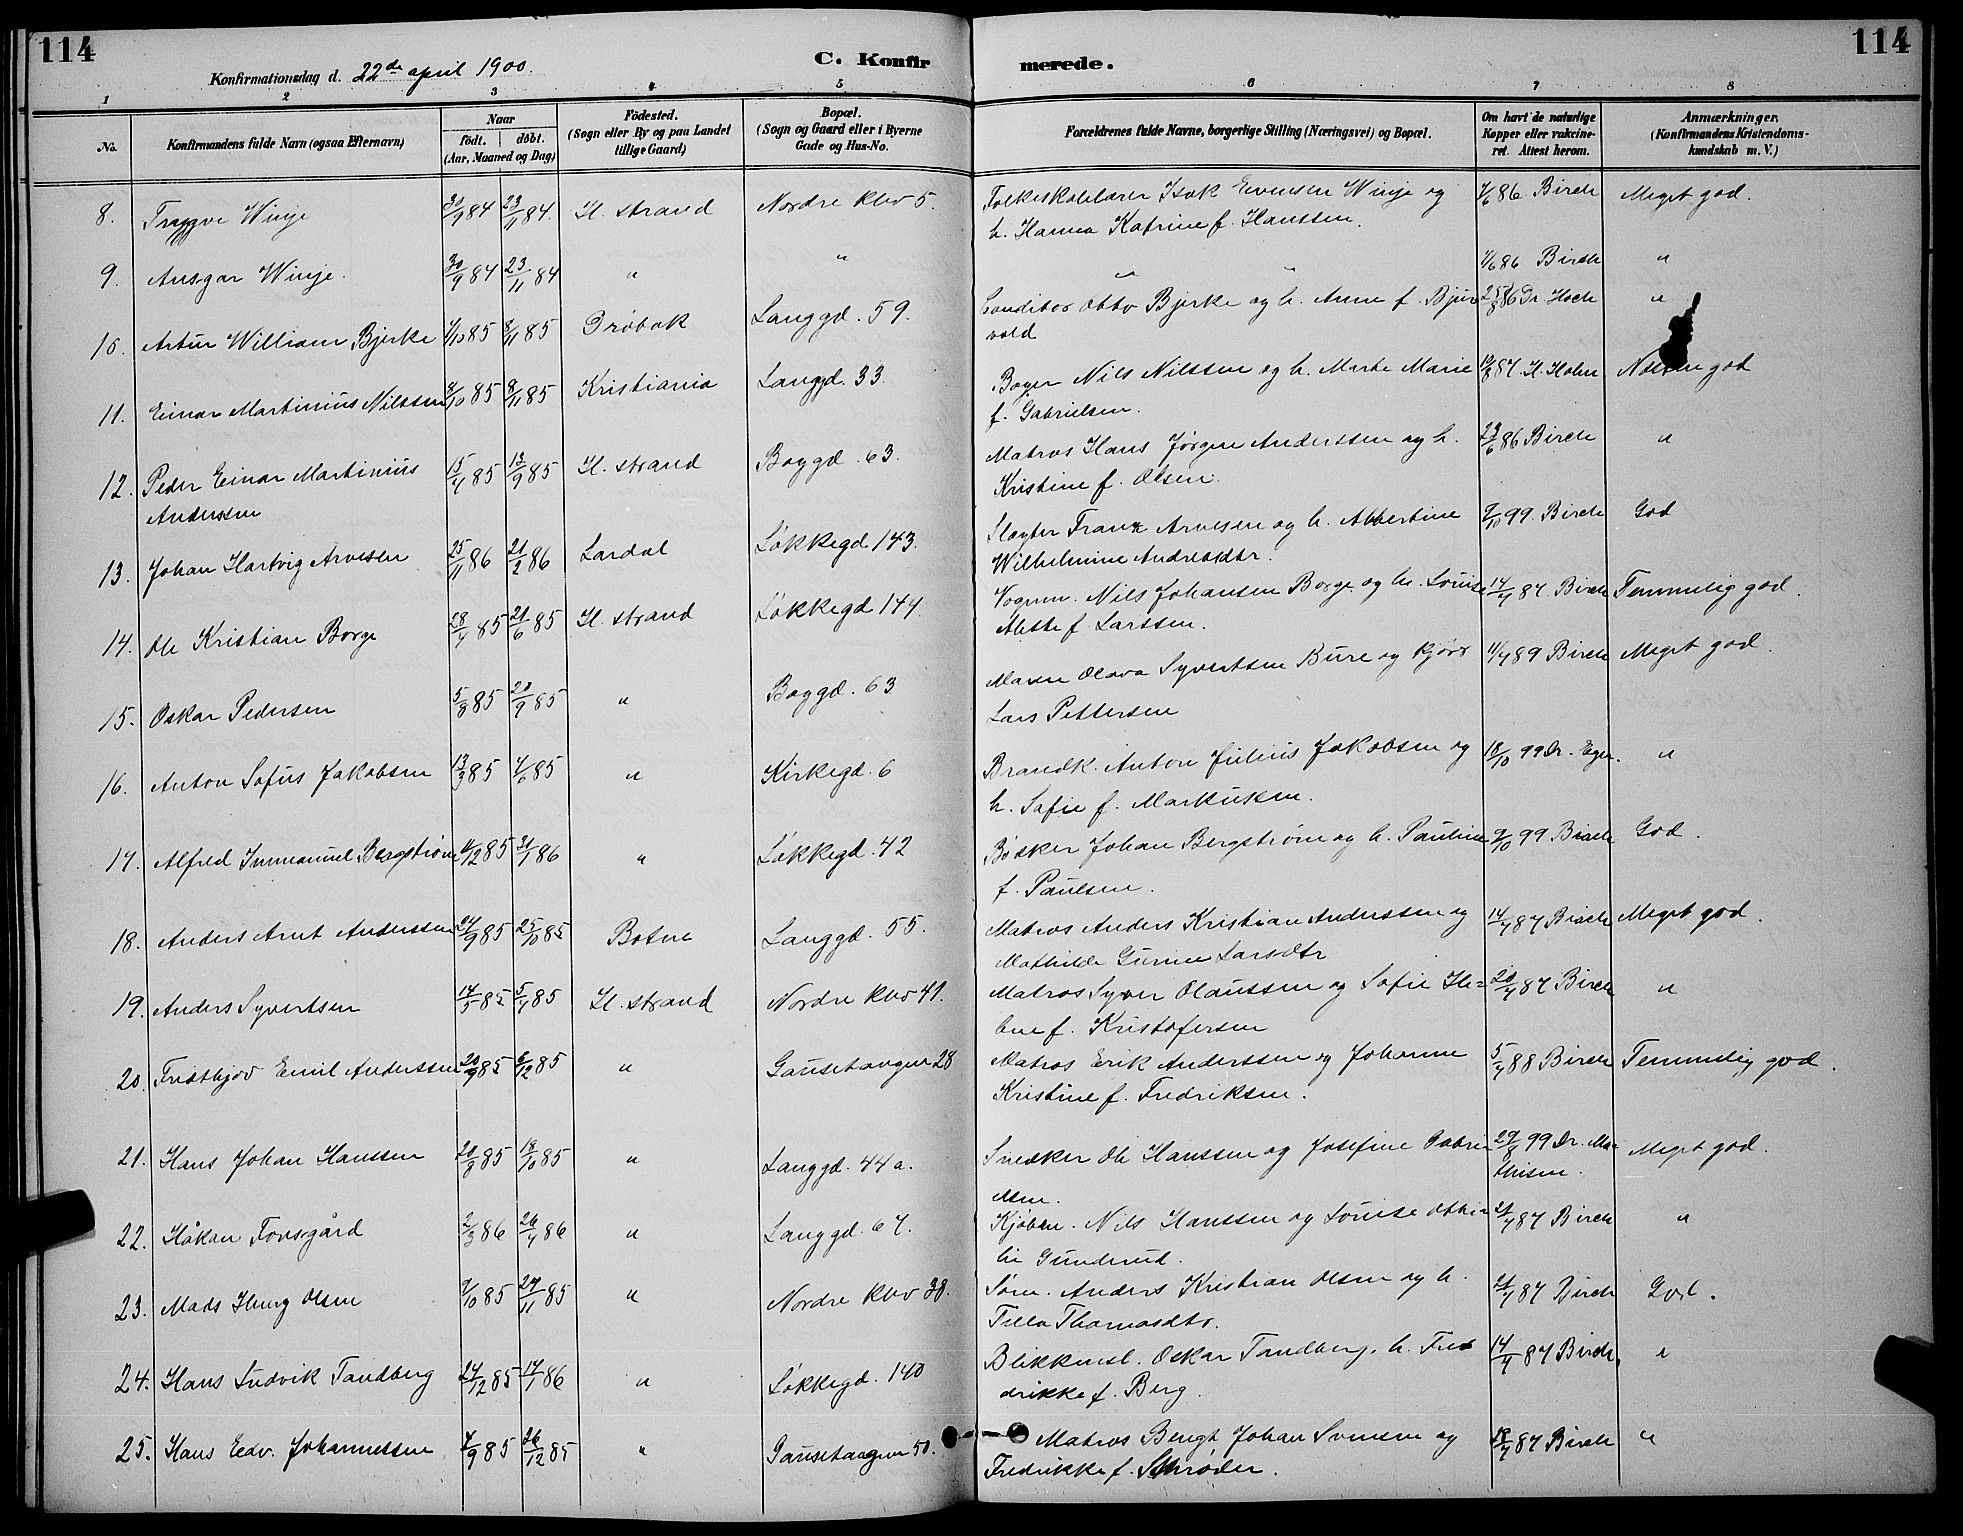 114
Konfirmationsdag d. 22de april 1900.
C. Konfirmerede.
114
1 2 3 4 5 6 7 8
No.
Konfirmandens fulde Navn (ogsaa Efternavn)
Naar
födt. döbt.
(Aar, Maaned og Dag)
Födested.
(Sogn eller By og paa Landet
tillige Gaard)
Bopæl.
(Sogn og Gaard eller i Byerne
Gade og Hus-No.
Forældrenes fulde Navne, borgerlige Stilling (Næringsvei) og Bopæl.
Om havt de naturlige
Kopper eller vakcine-
ret. Attest herom.
Anmærkninger.
(Konfirmandens Kristendoms-
kundskab m. V.)
8. Tryggve Winje 30/9 84 23/11 84. H. strand Nordre klev 5. Folkeskolelærer Isak Evensen Winje og 7/6 86 Birch Meget god.
h. Hanna Katrine f. Hanssen.
9. Ansgar Winje. 30/9 84 23/11 84 " " " " 7/6 86 Birch "
10. Artur William Bjerke 7/10 85 8/11 85 Drøbak Langgd. 59. Conditor Otto Bjerke og h. Anne f. Bjur 25/8 86 Dr. Hoch "
vold
11. Einar Martinius Nilssen 8/10 85 8/11 85 Kristiania Langgd. 33. Bager Nils Nilssen og h. Marte Marie 19/8 87 H. Holm god
f. Gabrielsen.
12. Peder Einar Martinius 15/7 85 13/9 85 H. strand Baggd. 63. Matros Hans Jørgen Anderssen og h. 23/6 86 Birch "
Anderssen Kristine f. Olsen.
13. Johan Hartvig Arvesen 25/11 86 21/2 86 Lardal Løkkegd 143. Slagter Frank Arvesen og h. Albertine 9/10 99. Birch God
Wilhelmine Andreasdtr.
14. Ole Kristian Borge 28/4 85 21/6 85 H. strand Løkkegd 144. Vognm. Nils Johansen Borge og h. Louise 14/7 87. Birch Temmelig god.
Alette f. Larssen.
15. Oskar Pedersen 5/8 85 20/9 85 " Baggd. 63 Maren Olava Syvertsen Bure og Kjørs 11/7 89 Birch Meget god.
Lars Pettersen
16. Anton Sofus Jakobsen 13/3 85 7/6 85 " Kirkegd. 6 Brandk. Anton Julius Jakobsen og 18/10 99 Dr. Eger. "
h. Sofie f. Markussen.
17. Alfred Immanuel Bergstrøm 11/12 85 31/1 86 " Løkkegd. 42 Bødker Johan Bergstrøm og h. Pauline 9/10 99 Birch God.
f. Paulsen.
18. Anders Arnt Anderssen 27/9 85 25/10 85 Botne Langgd. 55. Matros Anders Kristian Anderssen og 14/7 87 Birch Meget god.
Mathilde Gurine Larsdtr
19. Anders Syvertsen 14/5 85 5/7 85 H. strand Nordre klev 41. Matros Syver Olaussen og Sofie He= 20/7 87 Birch "
lene f. Kristofersen
20. Fridthjov Emil Anderssen 20/9 85 6/12 85 " Gausetangen 28 Matros Erik Anderssen og Johanne 5/7 88 Birch Temmelig god.
Kristine f. Fredriksen.
21. Hans Johan Hanssen 20/8 85 18/10 85 " Langgd. 44 a. Snedker Ole Hanssen og Josefine Gabri 29/8 99 Dr. Ma= Meget god.
elsen. thisen.
22. Håkon Forsgård 2/3 86 26/4 86 " Langgd. 67. Kjøbm. Nils Hanssen og Louise Othi= 21/7 87 Birch "
lie Gunderud.
23. Mads Ihung Olsen 9/10 85 27/11 85 " Nordre klev 38. Søm. Anders Kristian Olsen og h. 21/7 87 Birch God.
Tilla Thomasdtr.
24. Hans Ludvik Tandberg 27/12 85 17/1 86 " Løkkegd. 140 Blikkensl. Oskar Tandberg. h. Fred 14/7 87 Birch. "
drikke f. Berg.
25. Hans Edv. Johannessen 7/9 85 26/12 85 " Gausetangen 50. Matros Bengt Johan Svensen og 18/7 87 Birch "
Fredrikke f. Schrøder.